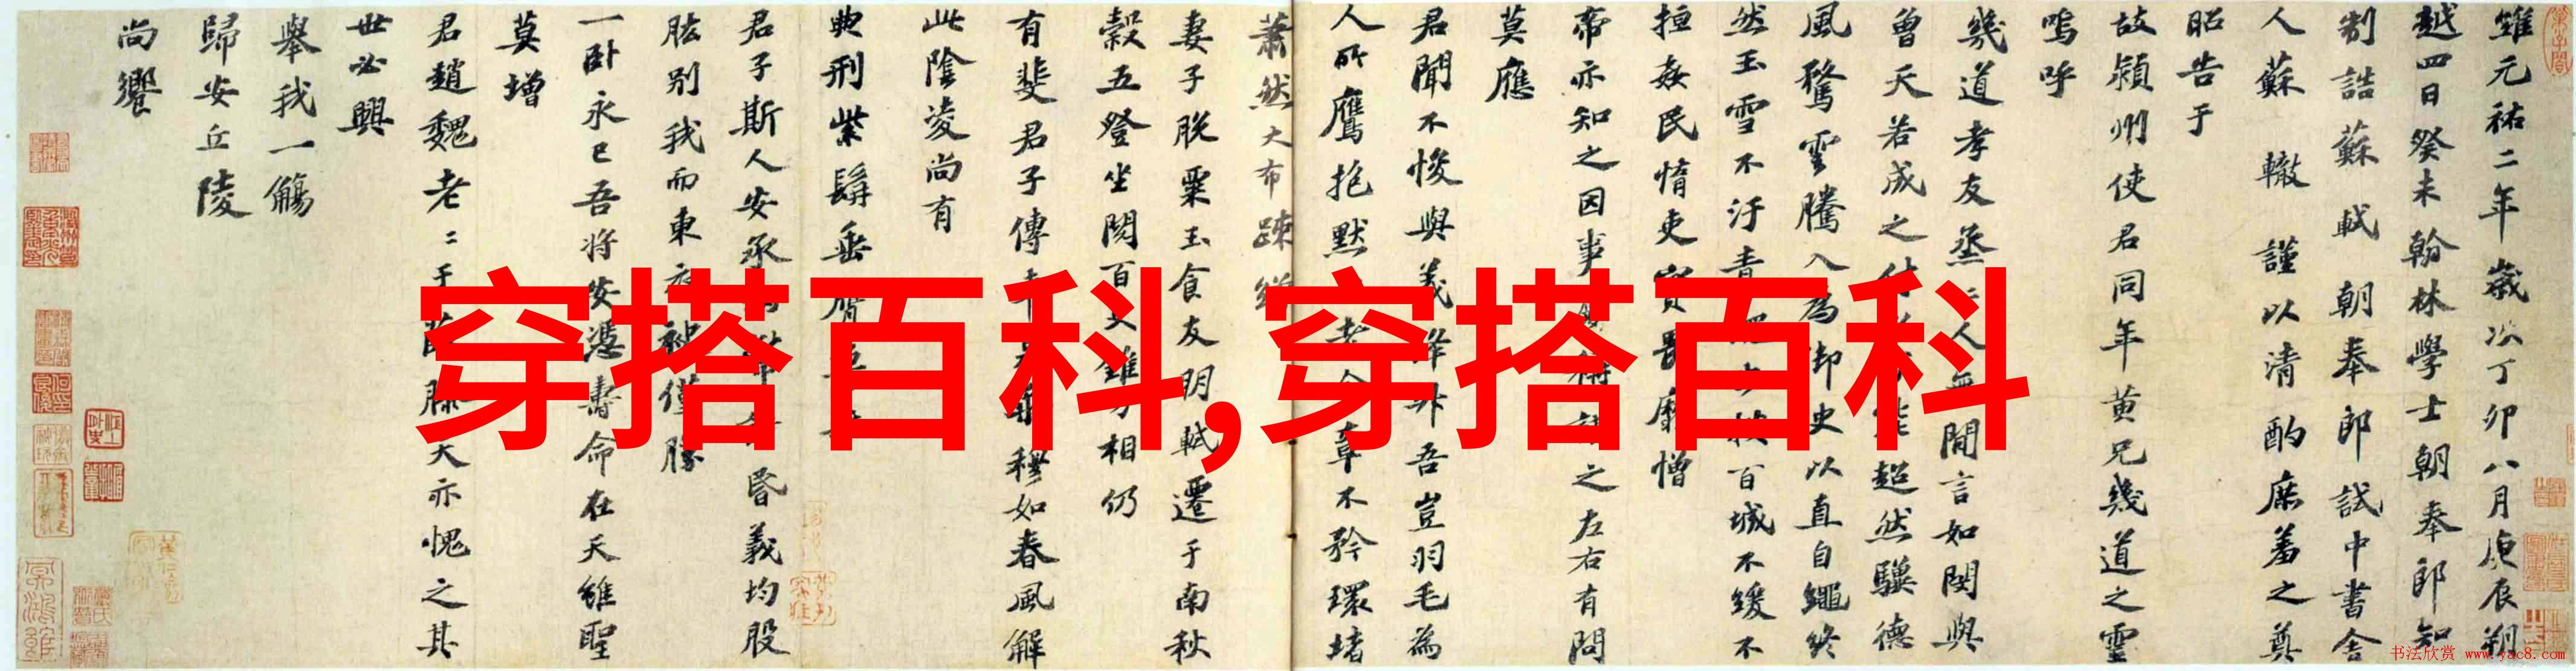 維元祐二年歲次丁卯八月庚辰朔
越四日癸未翰林學士朝奉郎知
制誥蘇軾朝奉郎試中書舍
人蘇轍謹以清酌庶羞之奠
昭告于
故潁州使君同年黃兄幾道之靈
嗚呼
幾道孝友烝烝人無間言如閔與
曾天若成之超然驥德
風騖雲騰入為御史以直自繩終
然玉雪不汙青百城不緩不
擅姦民惰吏實畏靡憎
帝亦知之因事之左右有問
莫應
君聞不悛與義吾豈羽毛為
人所鷹抱默不矜環堵
蕭然大布疎
妻子脫粟玉食友朋軾遷于南秋
穀五登坐閱百相仍
有斐君子傳穆如春風解
此陰凌尚有
典刑紫髯垂膺
君子斯人安承昏義均股
肱別我而東衣僅勝
一臥永已吾將安憑壽命在天維聖
莫增
君趙魏老老于滕大亦愧之其
世必興
舉我一觴
歸安丘陵
尚饗
穿搭百科,穿搭百科
书法欣赏 www.yac8.com